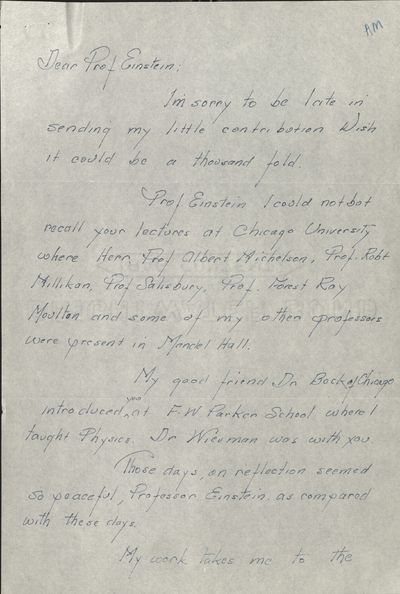 AM
Dear Prof Einstein:
I'm sorry to be late in
sending my little contribution Wish
it could be a thousand fold.
Prof Einstein I could not but
recall your lectures at Chicago University
where Herr Prof Albert Michelson, Prof. Robt
Millikan, Prof Salisbury, Prof. Forest Ray
Moulton and some of my other professors
were present in Mandel Hall.
My good friend Dr Back of Chicago
introduced you at F. W. Parker School where I
taught Physics. Dr was with you
Those days, on reflection seemed
so peaceful, Professor Einstein, as compared
with these days.
My work takes me to the